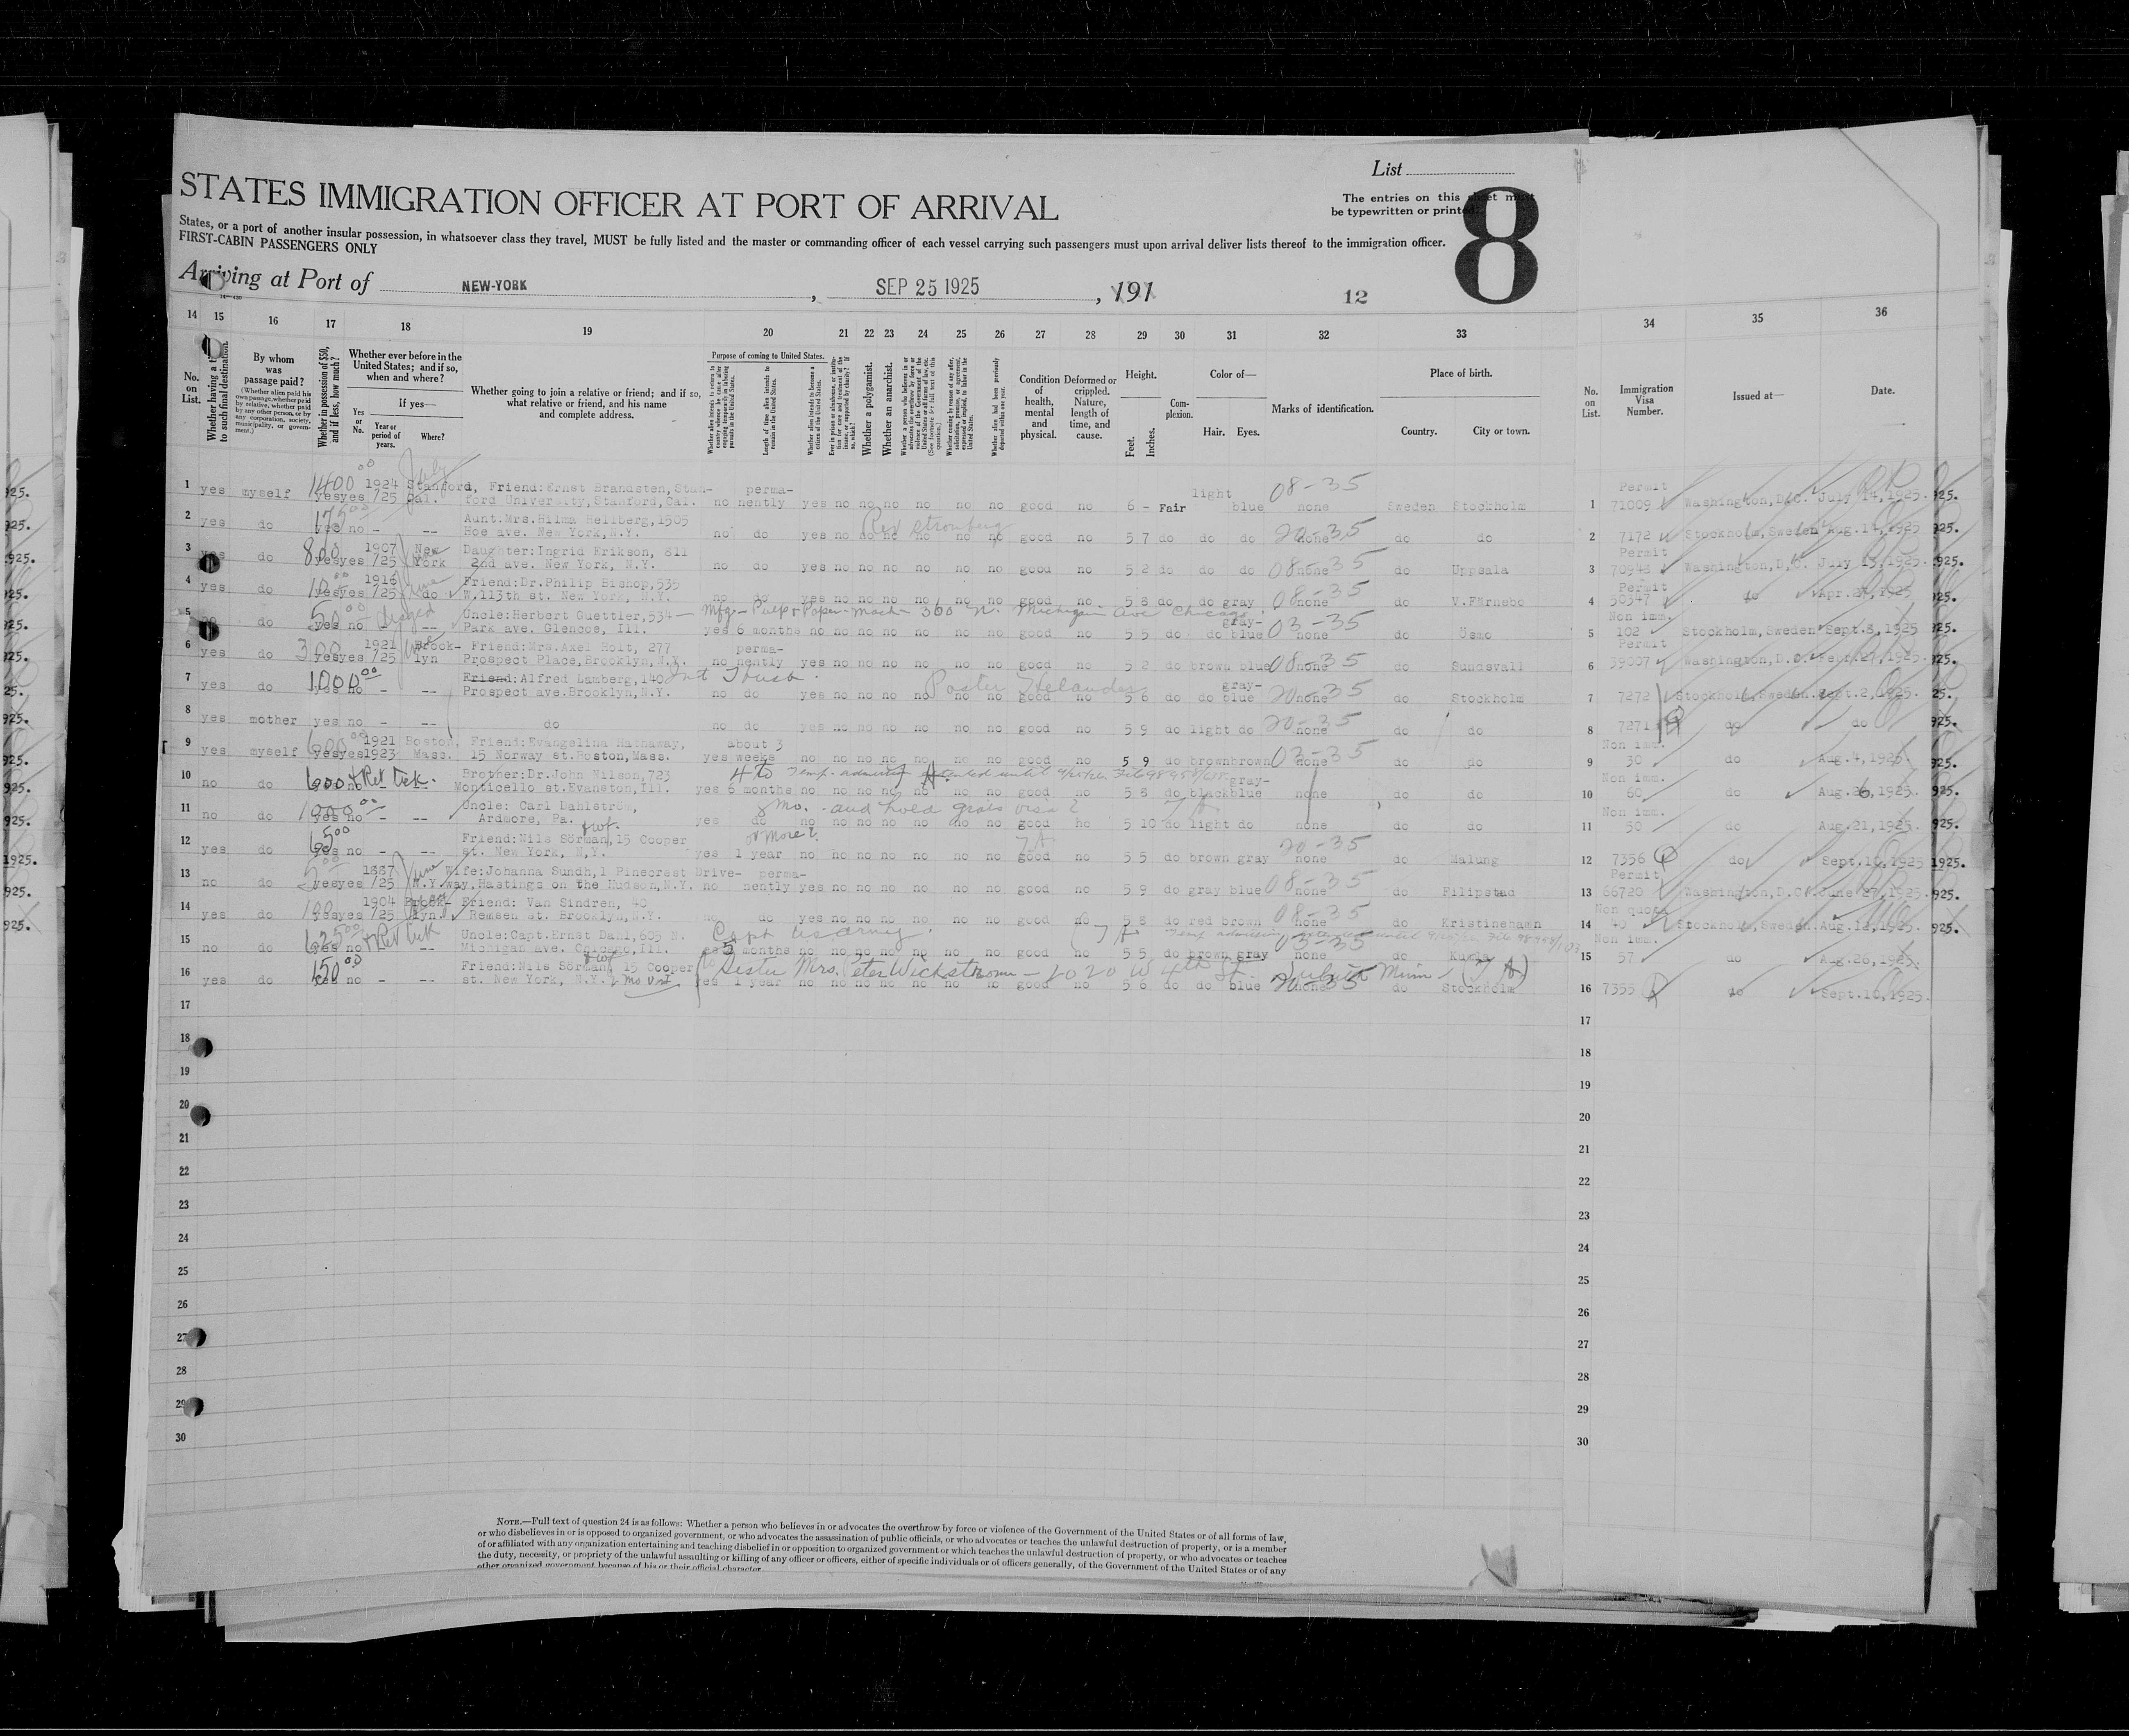 List
STATES IMMIGRATION OFFICER AT PORT OF ARRIVAL
The entries on this sheet must
be typewritten or printed.
8
States, or a port of another insular possession, in whatsoever class they travel, MUST be fully listed and the master or commanding officer of each vessel carrying such passengers must upon arrival deliver lists thereof to the immigration officer.
FIRST-CABIN PASSENGERS ONLY
Arriving at Port of NEW-YORK , SEP 25 1925 , 191
12
14 15 16 17 18 19 20 21 22 23 24 25 26 27 28 29 30 31 32 33 34 35 36
No. on List.
Whether having a ticket to such final destination.
By whom was passage paid?
(Whether alien paid his own passage, whether paid by relative, whether paid by any other person, or by any corporation, society, municipality, or government.)
Whether in possession of $50, and if less, how much?
Whether ever before in the United States; and if so, when and where?
If yes—
Yes or No.
Year or period of years.
Where?
Whether going to join a relative or friend; and if so, what relative or friend, and his name and complete address.
Purpose of coming to United States.
Length of time alien intends to remain in the United States.
Whether alien intends to become a citizen of the United States.
Whether a polygamist.
Whether an anarchist.
Whether alien had been previously deported within one year.
Condition of health, mental and physical.
Deformed or crippled. Nature, length of time, and cause.
Height.
Feet. Inches.
Complexion.
Color of—
Hair. Eyes.
Marks of identification.
Place of birth.
Country. City or town.
No. on List.
Immigration Visa Number.
Issued at—
Date.
1400 00 1924 Stanford, Friend: Ernst Brandsten, Stan- perma- light 08-35 Permit
1 yes myself yes yes /25 Cal. ford University, Stanford, Cal. no nently yes no no no no no no good no 6 - Fair blue none Sweden Stockholm 1 71009 Washington, D.C. July 14, 1925.
175 00 Aunt. Mrs. Hilma Hellberg, 1505
2 yes do yes no - -- Hoe ave. New York, N.Y. no do yes no no no no no no good no 5 7 do do do 20-35 none do do 2 7172 Stockholm, Sweden Aug. 14, 1925
800 1907 New Daughter: Ingrid Erikson, 811 Permit
3 yes do yes yes /25 York 2nd ave. New York, N.Y. no do yes no no no no no no good no 5 2 do do do 08-35 none do Uppsala 3 70948 Washington, D.C. July 15, 1925.
1916 Friend: Dr. Philip Bishop, 535 Permit
4 yes do yes yes /25 do W. 113th st. New York, N.Y. no do yes no no no no no no good no 5 8 do do gray 08-35 none do V. Färnebo 4 50347 do Apr. 1925
50 00 Uncle: Herbert Guettler, 534 — Mfg - Pulp & Paper - Mach - 360 N. Michigan Ave Chicago. gray- Non imm.
5 do yes no - -- Park ave. Glencoe, Ill. yes 6 months no no no no no no no good no 5 5 do do blue 03-35 none do Ösmo 5 102 Stockholm, Sweden Sept. 8, 1925
300 1921 Brook- Friend: Mrs. Axel Holt, 277 perma- Permit
6 yes do yes yes /25 lyn Prospect Place, Brooklyn, N.Y. no nently yes no no no no no no good no 5 2 do brown blue 08-35 none do Sundsvall 6 39007 Washington, D.C. Febr. 27, 1925.
1000 00 Friend: Alfred Lamberg, 140 gray-
7 yes do yes no - -- Prospect ave. Brooklyn, N.Y. no do yes no no no no no no good no 5 6 do do blue 20-35 none do Stockholm 7 7272 Stockholm, Sweden. Sept. 2, 1925.
8 yes mother yes no - -- do no do yes no no no no no no good no 5 9 do light do 20-35 none do do 8 7271 do do
600 00 1921 Boston, Friend: Evangelina Hathaway, about 3 Non imm.
9 yes myself yes yes 1923 Mass. 15 Norway st. Boston, Mass. yes weeks no no no no no no no good no 5 9 do brown brown 03-35 none do do 9 30 do Aug. 4, 1925.
600 + Ret Tick. Brother: Dr. John Wilson, 723 gray- Non imm.
10 no do yes no - -- Monticello st. Evanston, Ill. yes 6 months no no no no no no no good no 5 8 do black blue none do do 10 60 do Aug. 26, 1925.
1000 00 Uncle: Carl Dahlström, 8 Mo. - and hold Non imm.
11 no do yes no - -- Ardmore, Pa. yes do no no no no no no no good no 5 10 do light do none do do 11 50 do Aug. 21, 1925.
65 00 Friend: Nils Sörman, 15 Cooper or more?
12 yes do yes no - -- st. New York, N.Y. yes 1 year no no no no no no no good no 5 5 do brown gray 20-35 none do Malung 12 7356 do Sept. 10, 1925
1887 June Wife: Johanna Sundh, 1 Pinecrest Drive- perma- Permit
13 no do yes yes /25 N.Y. way. Hastings on the Hudson, N.Y. no nently yes no no no no no no good no 5 9 do gray blue 08-35 none do Filipstad 13 66720 Washington, D.C. June 27, 1925.
100 1904 Brook- Friend: Van Sindren, 40 Non quota
14 yes do yes yes /25 lyn. Remsen st. Brooklyn, N.Y. no do yes no no no no no no good no 5 8 do red brown 08-35 none do Kristinehamn 14 40 Stockholm, Sweden. Aug. 12, 1925.
625 00 + Ret Tick Uncle: Capt. Ernst Dahl, 605 N. Capt US army. Non imm.
15 no do yes no -- Michigan ave. Chicago, Ill. yes 5 months no no no no no no no good no 5 5 do brown gray 03-35 none do Kumla 15 57 do Aug. 26, 1925.
150 00 Friend: Nils Sörman, 15 Cooper Sister Mrs. Peter Wickstrom - 2020 W 4th St. Duluth Minn.
16 yes do yes no - -- st. New York, N.Y. yes 1 year no no no no no no no good no 5 6 do do blue 20-35 none do Stockholm 16 7355 do Sept. 10, 1925.
17 17
18 18
19 19
20 20
21 21
22 22
23 23
24 24
25 25
26 26
27 27
28 28
29 29
30 30
NOTE.—Full text of question 24 is as follows: Whether a person who believes in or advocates the overthrow by force or violence of the Government of the United States or of all forms of law,
or who disbelieves in or is opposed to organized government, or who advocates the assassination of public officials, or who advocates or teaches the unlawful destruction of property, or is a member
of or affiliated with any organization entertaining and teaching disbelief in or opposition to organized government or which teaches the unlawful destruction of property, or who advocates or teaches
the duty, necessity, or propriety of the unlawful assaulting or killing of any officer or officers, either of specific individuals or of officers generally, of the Government of the United States or of any
other organized government because of his or their official character.